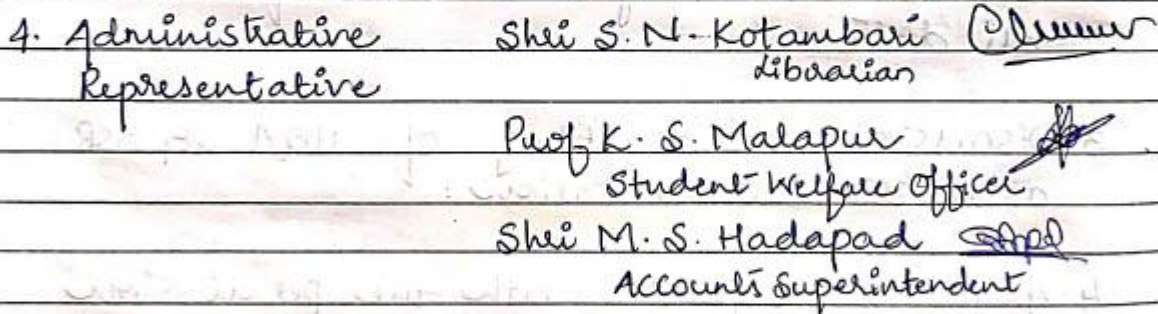 4. Administrative Shri S. N. Kotambari
Representative Librarian
Prof K. S. Malapur
Student Welfare Officer
Shri M. S. Hadapad
Accounts Superintendent